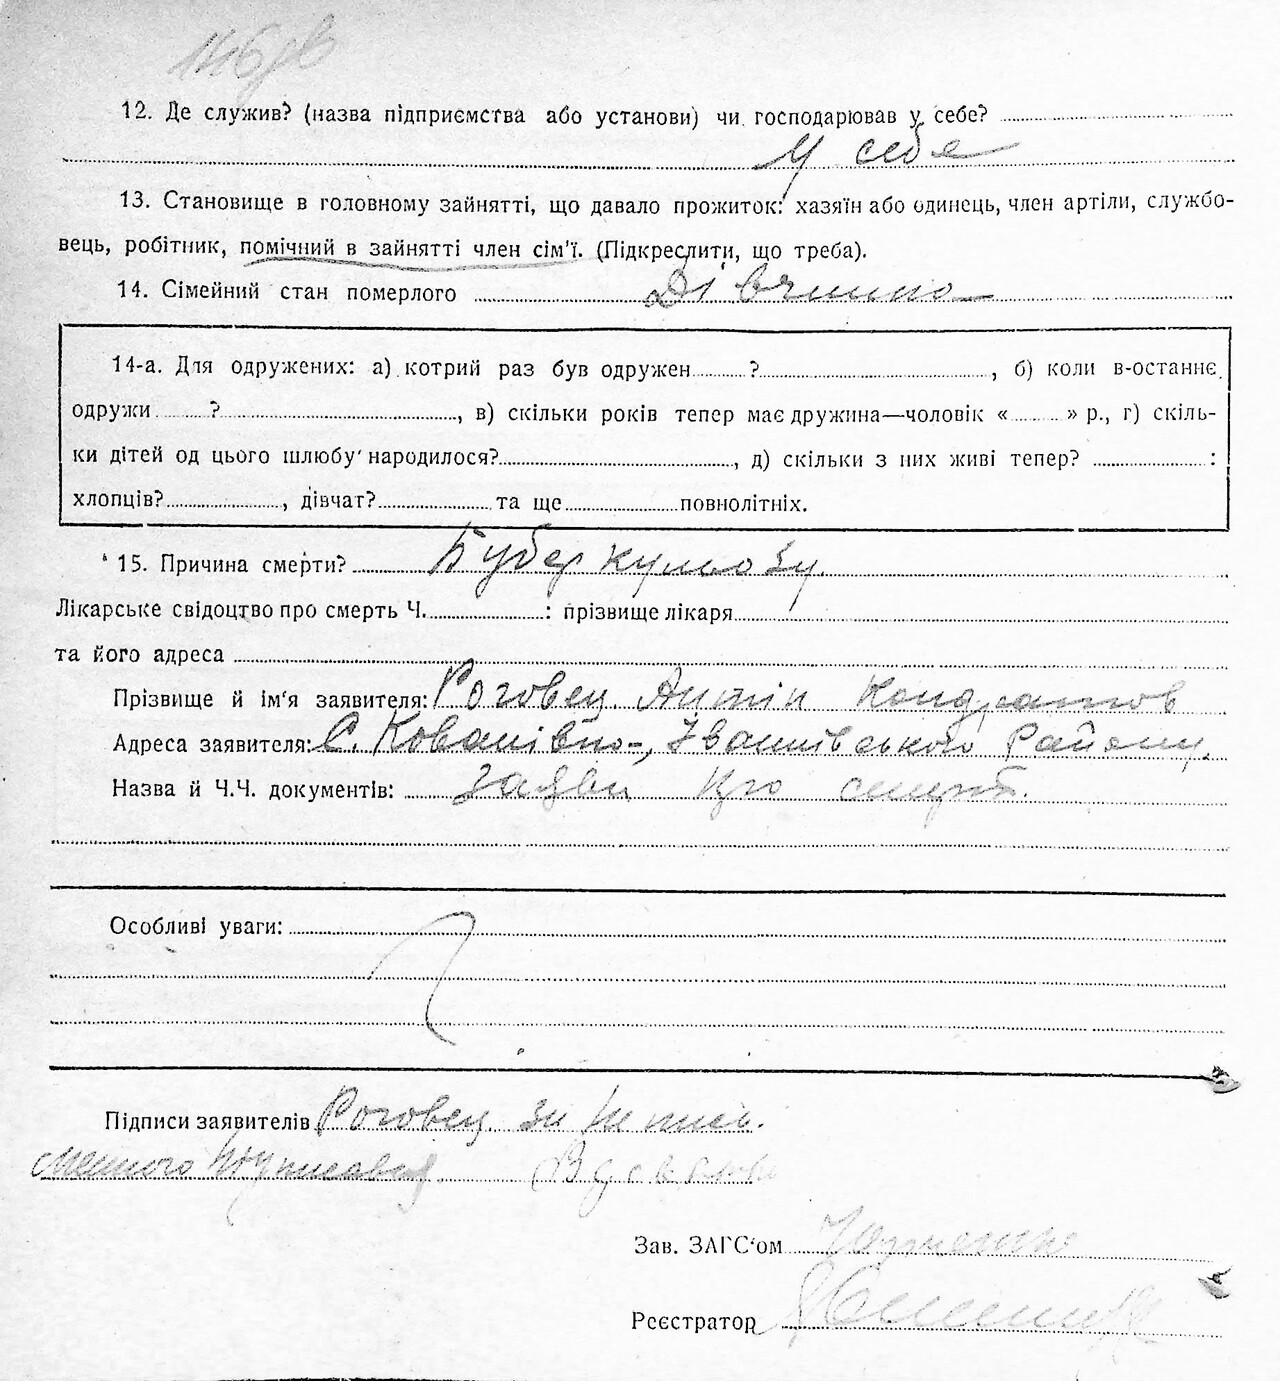 12. Де служив? (назва підприємства або установи) чи господарював у себе?
У себе
13. Становище в головному зайнятті, що давало прожиток: хазяїн або одинець, член артіли, службо-
вець, робітник, помічний в зайнятті член сім'ї. (Підкреслити, що треба).
14. Сімейний стан померлого Дівчина
14-а. Для одружених: а) котрий раз був одружен ? , б) коли в-останнє
одружи ? , в) скільки років тепер має дружина—чоловік « » р., г) скіль-
ки дітей од цього шлюбу народилося? , д) скільки з них живі тепер? :
хлопців? , дівчат? та ще повнолітніх.
15. Причина смерти? Туберкульозу
Лікарське свідоцтво про смерть Ч. : прізвище лікаря
та його адреса
Прізвище й ім'я заявителя: Роговец Антін Кондратов
Адреса заявителя: С. Ковалівка, Іванківського Району.
Назва й Ч.Ч. документів: Заяви про смерть.
Особливі уваги:
Підписи заявителів Роговец за не пись.
менного
Зав. ЗАГС'ом
Реєстратор